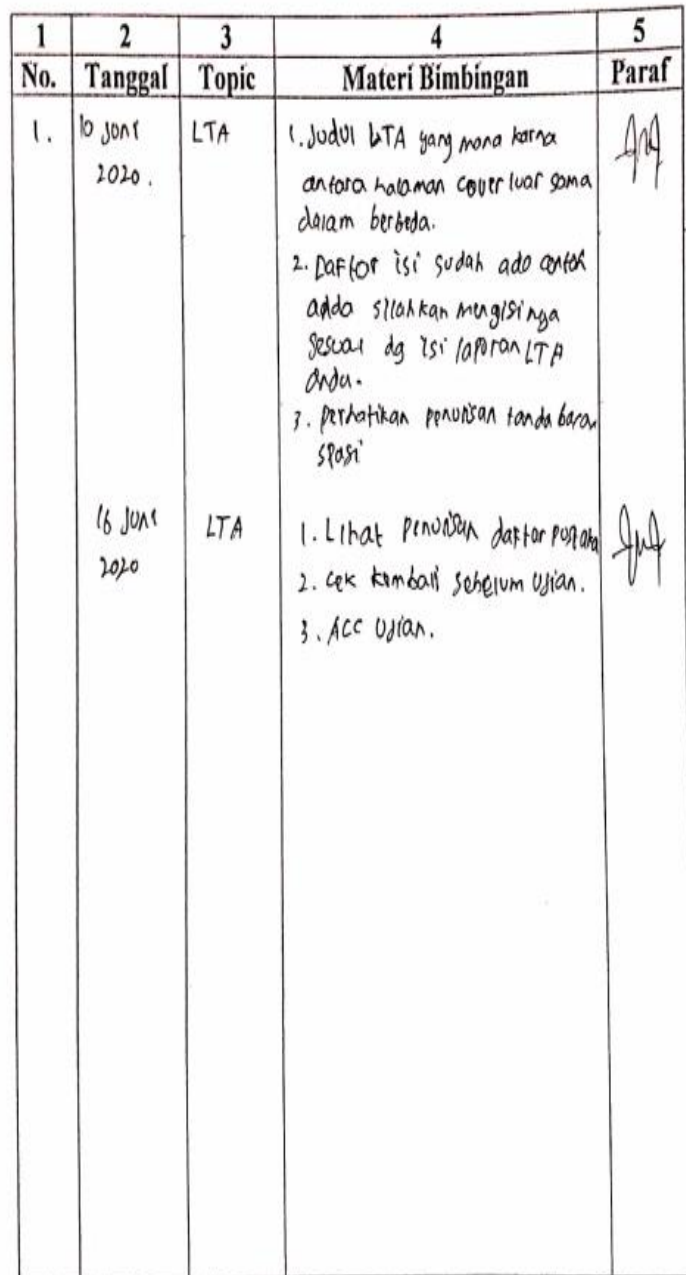 1 2 3 4 5
No. Tanggal Topic Materi Bimbingan Paraf
1. 10 Juni LTA 1. Judul LTA yang mana karna
2020. antara halaman cover luar sama
dalam berbeda.
2. Daftar isi sudah ada contoh
silahkan mengisinya
sesuai dg isi laporan LTA
anda.
3. perhatikan penulisan tanda baca
spasi
16 Juni LTA 1. Lihat penulisan daftar pustaka
2020 2. Cek kembali sebelum Ujian.
3. ACC Ujian.